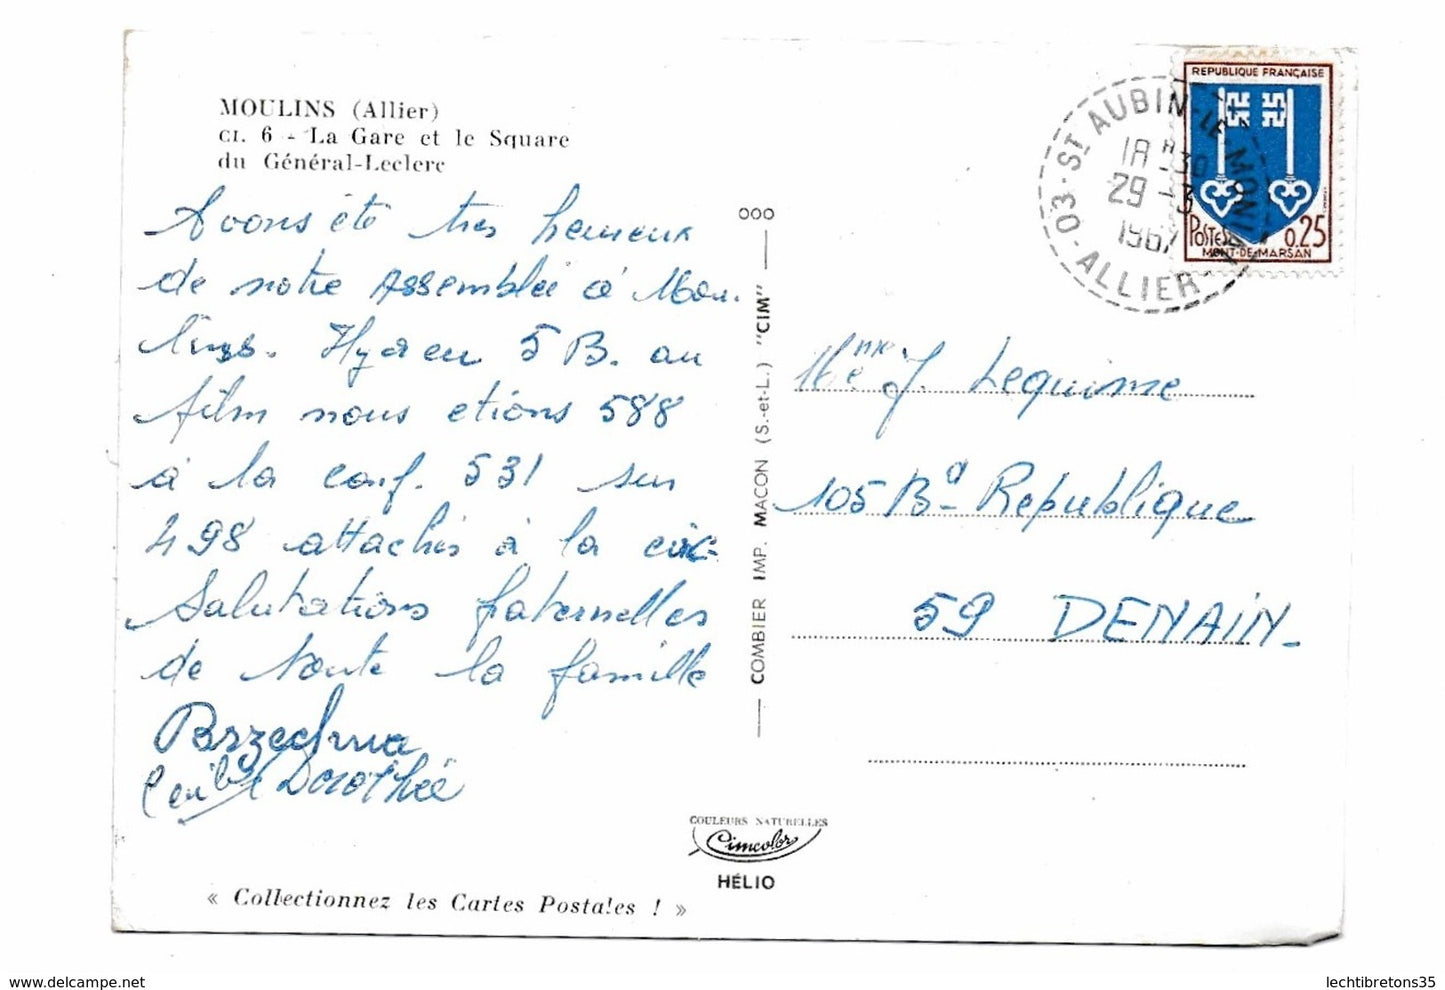 MOULINS (Allier)
CI. 6 - La Gare et le Square
du Général-Leclerc
Avons été très heureux
de notre Assemblée à Mou-
lins. 5 B. au
film nous etions 588
à la conf. 531 sur
498 attachés à la circ.
Salutations fraternelles
de toute la famille
Brzechwa
Dorothée
« Collectionnez les Cartes Postales ! »
COMBIER IMP. MACON (S.-et-L.) "CIM"
COULEURS NATURELLES
Cimcolor
HÉLIO
03 - ST AUBIN-LE-MONIAL - ALLIER
18H30
29 - 3
1967
REPUBLIQUE FRANÇAISE
POSTES 0,25
MONT-DE-MARSAN
J. Lequime
105 Bd Republique
59 DENAIN -
lechtibretons35